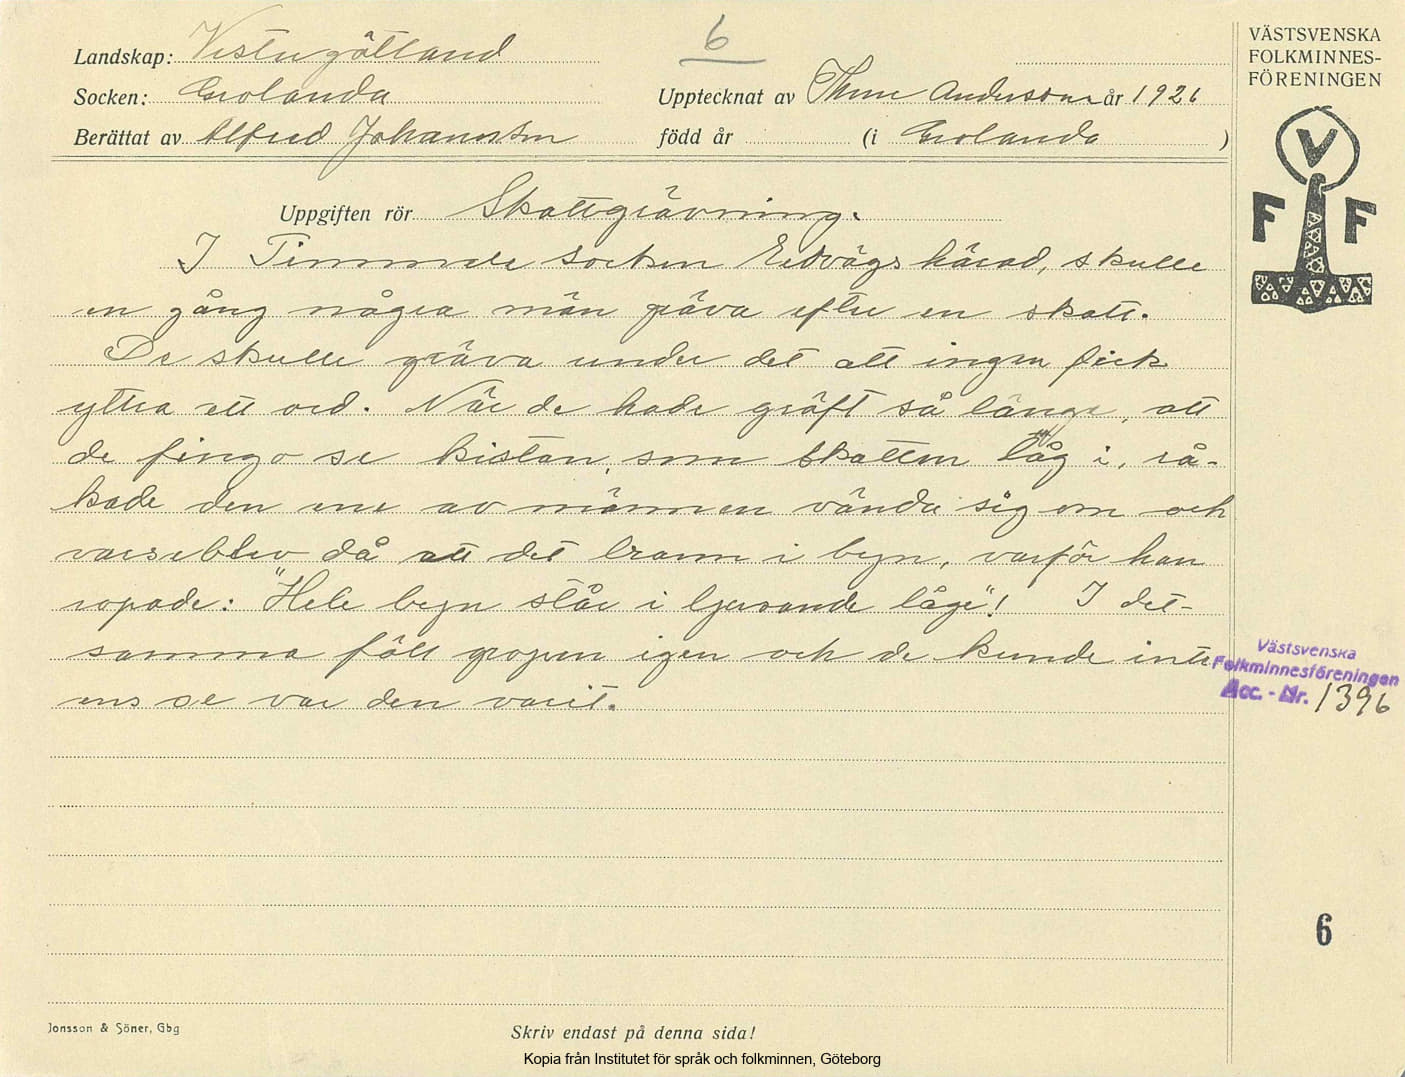 6
VÄSTSVENSKA
FOLKMINNES-
FÖRENINGEN
Landskap: Vestergötland
Socken: Grolanda
Upptecknat av Thure Andersson år 1926
Berättat av Alfred Johansson född år (i Grolanda )
V
F F
Uppgiften rör Skattgrävning.
I Timmele socken Redvägs härad, skulle
en gång några män gräva efter en skatt.
De skulle gräva under det att ingen fick
yttra ett ord. När de hade gräft så länge, att
de fingo se kistan, som skatten låg i, rå-
kade den ene av männen vända sig om och
varseblev då att det brann i byn, varför han
ropade: "Hele byn står i ljusande låge"! I det-
samma föll gropen igen och de kunde inte
ens se var den varit.
Västsvenska
Folkminnesföreningen
Acc. - Nr. 1396
6
Jonsson & Söner, Gbg
Skriv endast på denna sida!
Kopia från Institutet för språk och folkminnen, Göteborg